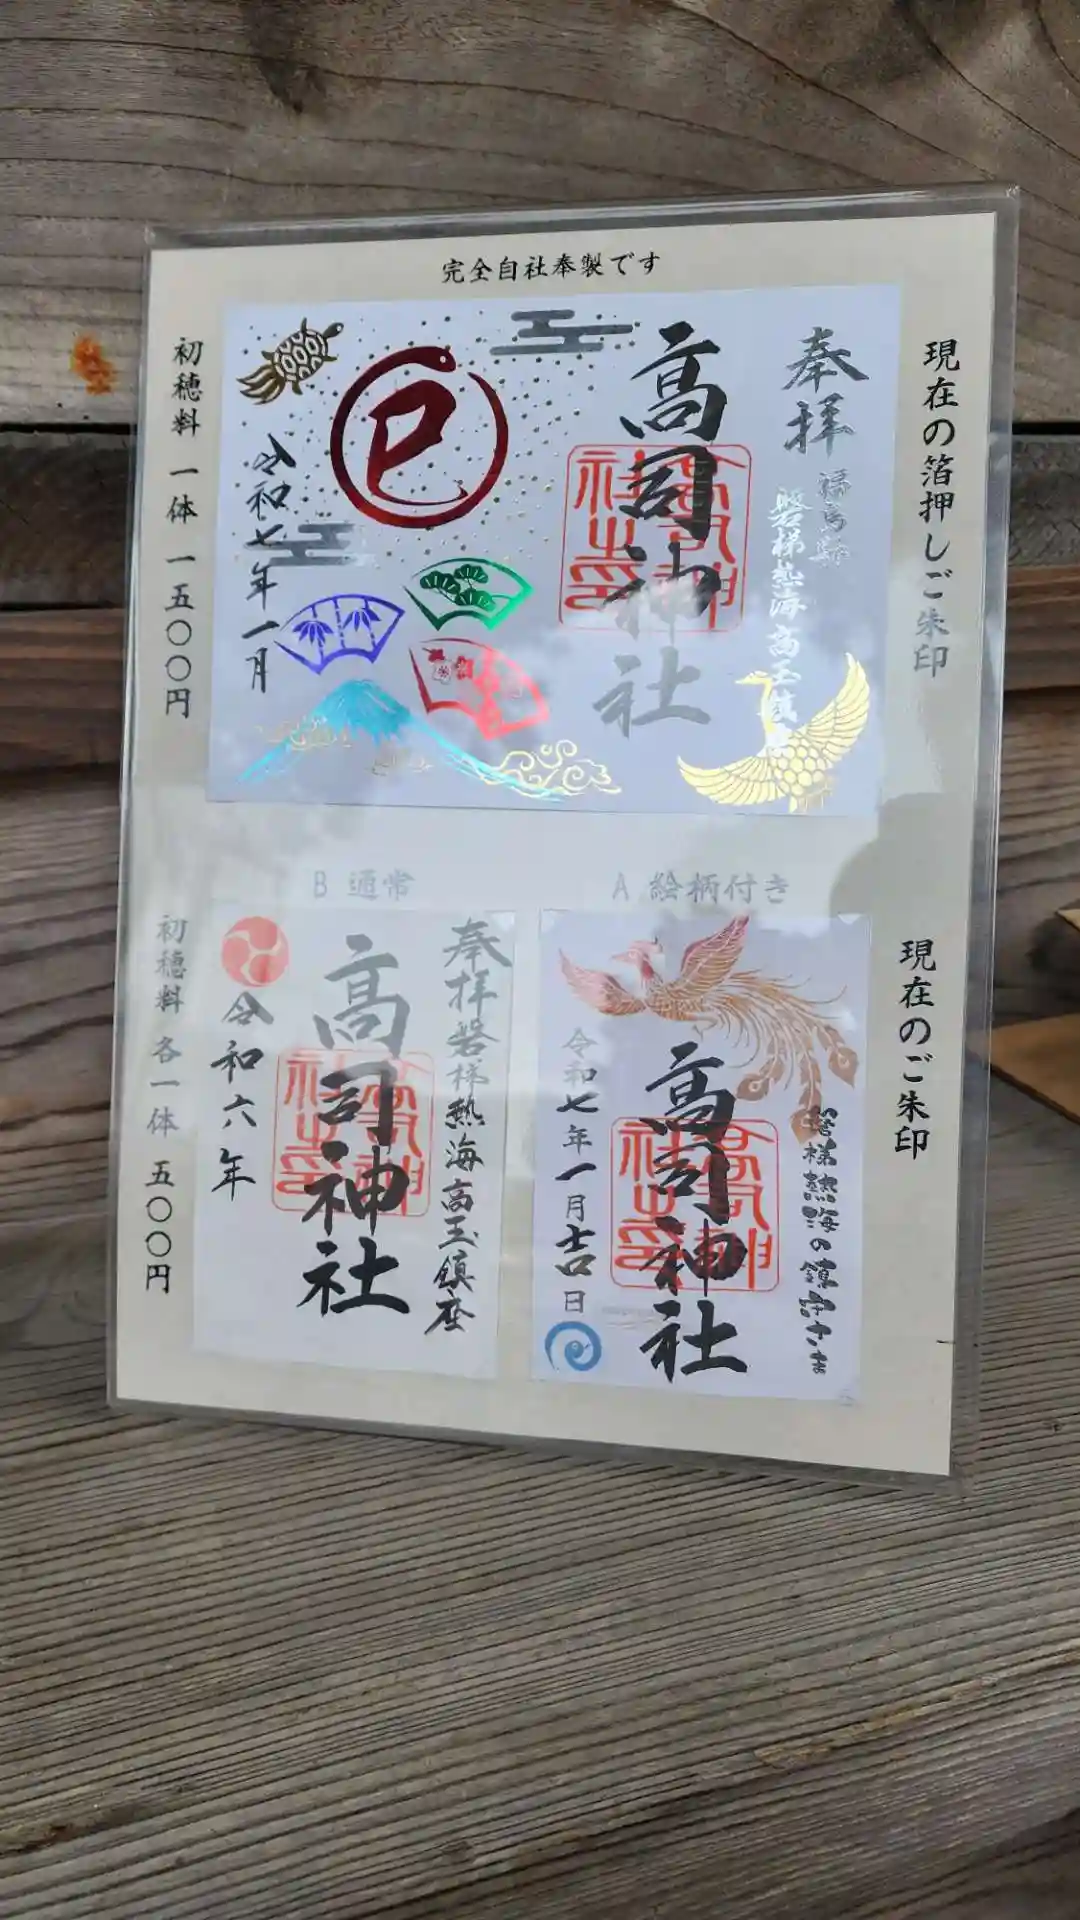 完全自社奉製です
現在の箔押しご朱印
奉拝
福島縣
磐梯熱海高玉鎮座
高司神社
高司神社之印
巳
令和七年一月
初穂料 一体 一五〇〇円
現在のご朱印
A 絵柄付き
磐梯熱海の鎮守さま
高司神社
高司神社之印
令和七年一月吉日
B 通常
奉拝 磐梯熱海高玉鎮座
高司神社
高司神社之印
令和六年
初穂料 各一体 五〇〇円